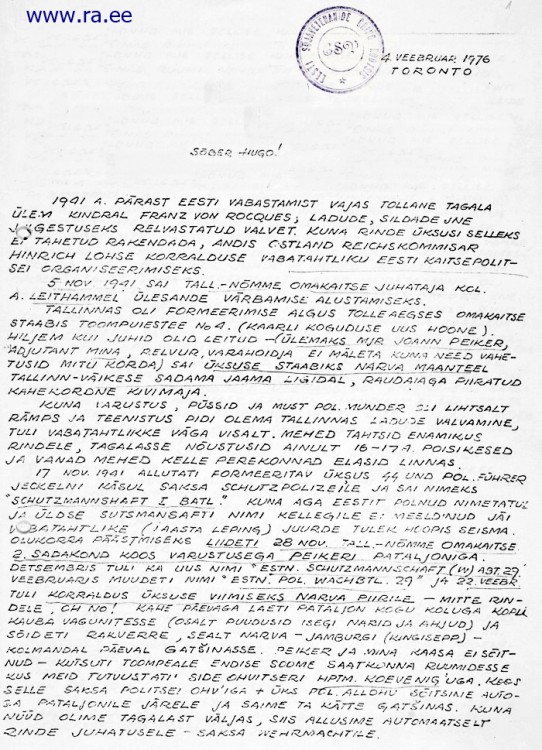 www.ra.ee
1
4. VEEBRUAR 1976
TORONTO
SÕBER HUGO!
1941 A. PÄRAST EESTI VABASTAMIST VAJAS TOLLANE TAGALA
ÜLEM KINDRAL FRANZ VON ROCQUES; LADUDE, SILDADE JNE
JULGESTUSEKS RELVASTATUD VALVET. KUNA RINDE ÜKSUSI SELLEKS
EI TAHETUD RAKENDADA, ANDIS OSTLAND REICHSKOMMISAR
HINRICH LOHSE KORRALDUSE VABATAHTLIKU EESTI KAITSEPOLIT-
SEI ORGANISEERIMISEKS.
5 NOV. 1941 SAI TALL.-NÕMME OMAKAITSE JUHATAJA KOL.
A. LEITHAMMEL ÜLESANDE VÄRBAMISE ALUSTAMISEKS.
TALLINNAS OLI FORMEERIMISE ALGUS TOLLEAEGSES OMAKAITSE
STAABIS TOOMPUIESTEE No 4. (KAARLI KOGUDUSE UUS HOONE).
HILJEM KUI JUHID OLID LEITUD - (ÜLEMAKS MJR JOANN PEIKER,
ADJUTANT MINA, RELVUR, VARAHOIDJA EI MÄLETA KUMA NEED VAHE-
TUSID MITU KORDA) SAI ÜKSUSE STAABIKS NARVA MAANTEEL
TALLINN-VÄIKESE SADAMA JAAMA LIGIDAL, RAUDAIAGA PIIRATUD
KAHEKORDNE KIVIMAJA.
KUNA VARUSTUS, PÜSSID JA MUST POL. MUNDER OLI LIHTSALT
RÄMPS JA TEENISTUS PIDI OLEMA TALLINNAS LADUDE VALVAMINE,
TULI VABATAHTLIKKE VÄGA VISALT. MEHED TAHTSID ENAMIKUS
RINDELE, TAGALASSE NÕUSTUSID AINULT 16-17 A. POISIKESED
JA VANAD MEHED KELLE PEREKONNAD ELASID LINNAS.
17 NOV. 1941 ALLUTATI FORMEERITAV ÜKSUS 44 UND POL. FÜHRER
JECKELNI KÄSUL SAKSA SCHUTZPOLIZEILE JA SAI NIMEKS
"SCHUTZMANNSHAFT I BATL." KUNA AGA EESTIT POLNUD NIMETATUL
JA ÜLDSE SUTSMANSAFTI NIMI KELLEGILE EI MEELDINUD JÄI
VABATAHTLIKE (1 AASTA LEPING) JUURDE TULEK HOOPIS SEISMA.
OLUKORRA PÄÄSTMISEKS LIIDETI 28 NOV. TALL.-NÕMME OMAKAITSE
2. SADAKOND KOOS VARUSTUSEGA PEIKERI PATALJONIGA.
DETSEMBRIS TULI KA UUS NIMI "ESTN. SCHUTZMANNSCHAFT (W) ABT. 29"
VEEBRUARIS MUUDETI NIMI "ESTN. POL. WACHBTL. 29" JA 22. VEEBR.
TULI KORRALDUS ÜKSUSE VIIMISEKS NARVA PIIRILE - MITTE RIN-
DELE, OH NO! KAHE PÄEVAGA LAETI PATALJON KOGU KOLUGA KOPLI
KAUBA VAGUNITESSE (OSALT PUUDUSID ISEGI NARID JA AHJUD) JA
SÕIDETI RAKVERRE, SEALT NARVA - JAMBURGI (KINGISEPP) -
KOLMANDAL PÄEVAL GATŠINASSE. PEIKER JA MINA KAASA EI SÕIT-
NUD - KUTSUTI TOOMPEALE ENDISE SOOME SAATKONNA RUUMIDESSE
KUS MEID TUTUVSTATI SIDE OHVITSERI HPTM. KOEVENIG'UGA. KOOS
SELLE SAKSA POLITSEI OHV'IGA + ÜKS POL. ALLOHV SÕITSIME AUTO-
GA PATALJONILE JÄRELE JA SAIME TA KÄTTE GATŠINAS. KUNA
NÜÜD OLIME TAGALAST VÄLJAS, SIIS ALLUSIME AUTOMAATSELT
RINDE JUHATUSELE - SAKSA WEHRMACHTILE.